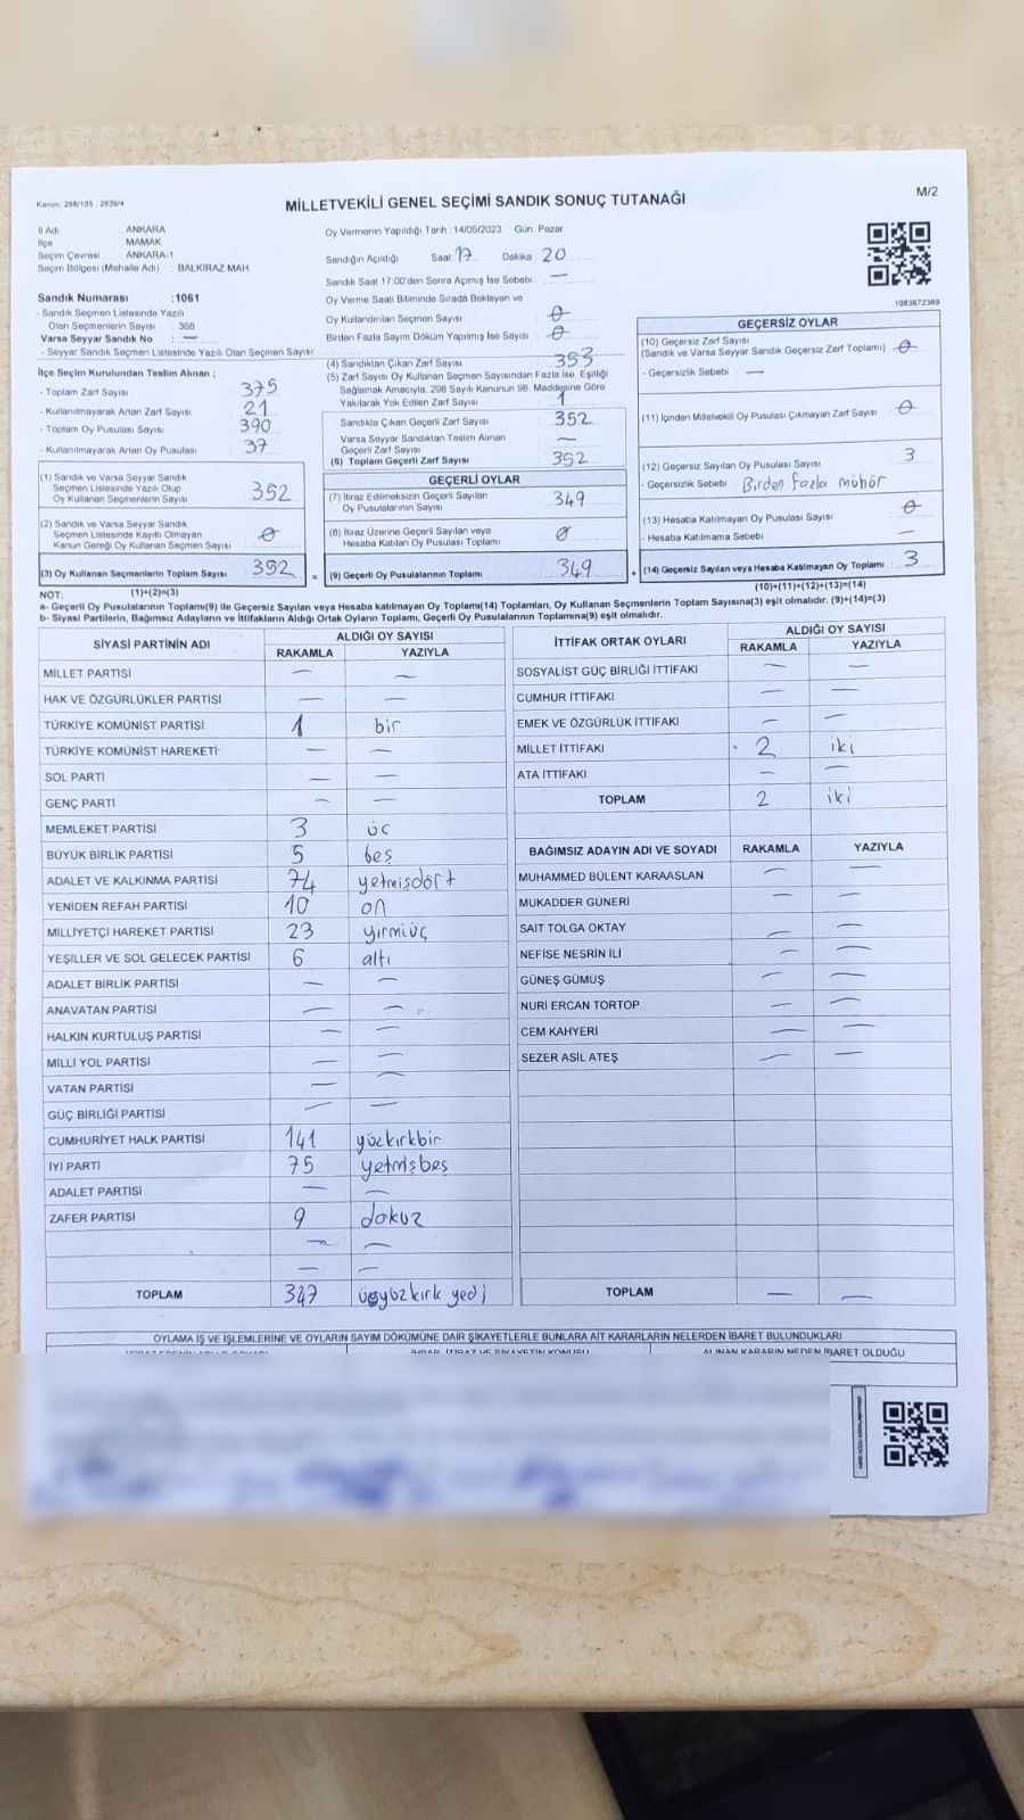 Kanun: 298/105 , 2839/4
MİLLETVEKİLİ GENEL SEÇİMİ SANDIK SONUÇ TUTANAĞI
M/2
İl Adı ANKARA
İlçe MAMAK
Seçim Çevresi ANKARA-1
Seçim Bölgesi (Mahalle Adı) BALKİRAZ MAH.
Sandık Numarası :1061
- Sandık Seçmen Listesinde Yazılı
Olan Seçmenlerin Sayısı : 368
Varsa Seyyar Sandık No : —
- Seyyar Sandık Seçmen Listesinde Yazılı Olan Seçmen Sayısı
İlçe Seçim Kurulundan Teslim Alınan ;
- Toplam Zarf Sayısı 375
- Kullanılmayarak Artan Zarf Sayısı 21
- Toplam Oy Pusulası Sayısı 390
- Kullanılmayarak Artan Oy Pusulası 37
(1) Sandık ve Varsa Seyyar Sandık
Seçmen Listesinde Yazılı Olup
Oy Kullanan Seçmenlerin Sayısı 352
(2) Sandık ve Varsa Seyyar Sandık
Seçmen Listesinde Kayıtlı Olmayan
Kanun Gereği Oy Kullanan Seçmen Sayısı 0
(3) Oy Kullanan Seçmenlerin Toplam Sayısı 352
(1)+(2)=(3)
Oy Vermenin Yapıldığı Tarih : 14/05/2023 Gün: Pazar
Sandığın Açıldığı Saat 17 Dakika 20
Sandık Saat 17:00'den Sonra Açılmış İse Sebebi: —
Oy Verme Saati Bitiminde Sırada Bekleyen ve
Oy Kullandırılan Seçmen Sayısı 0
Birden Fazla Sayım Döküm Yapılmış İse Sayısı 0
(4) Sandıktan Çıkan Zarf Sayısı 353
(5) Zarf Sayısı Oy Kullanan Seçmen Sayısından Fazla İse, Eşitliği
Sağlamak Amacıyla, 298 Sayılı Kanunun 98. Maddesine Göre
Yakılarak Yok Edilen Zarf Sayısı 1
Sandıkta Çıkan Geçerli Zarf Sayısı 352
Varsa Seyyar Sandıktan Teslim Alınan
Geçerli Zarf Sayısı —
(6) Toplam Geçerli Zarf Sayısı 352
GEÇERLİ OYLAR
(7) İtiraz Edilmeksizin Geçerli Sayılan
Oy Pusulalarının Sayısı 349
(8) İtiraz Üzerine Geçerli Sayılan veya
Hesaba Katılan Oy Pusulası Toplamı 0
= (9) Geçerli Oy Pusulalarının Toplamı 349
1083672369
GEÇERSİZ OYLAR
(10) Geçersiz Zarf Sayısı
(Sandık ve Varsa Seyyar Sandık Geçersiz Zarf Toplamı) 0
- Geçersizlik Sebebi —
(11) İçinden Milletvekili Oy Pusulası Çıkmayan Zarf Sayısı 0
(12) Geçersiz Sayılan Oy Pusulası Sayısı 3
- Geçersizlik Sebebi Birden fazla mühür
(13) Hesaba Katılmayan Oy Pusulası Sayısı 0
- Hesaba Katılmama Sebebi —
+ (14) Geçersiz Sayılan veya Hesaba Katılmayan Oy Toplamı 3
(10)+(11)+(12)+(13)=(14)
NOT:
a- Geçerli Oy Pusulalarının Toplamı(9) ile Geçersiz Sayılan veya Hesaba katılmayan Oy Toplamı(14) Toplamları, Oy Kullanan Seçmenlerin Toplam Sayısına(3) eşit olmalıdır. (9)+(14)=(3)
b- Siyasi Partilerin, Bağımsız Adayların ve İttifakların Aldığı Ortak Oyların Toplamı, Geçerli Oy Pusulalarının Toplamına(9) eşit olmalıdır.
SİYASİ PARTİNİN ADI ALDIĞI OY SAYISI
RAKAMLA YAZIYLA
MİLLET PARTİSİ — —
HAK VE ÖZGÜRLÜKLER PARTİSİ — —
TÜRKİYE KOMÜNİST PARTİSİ 1 bir
TÜRKİYE KOMÜNİST HAREKETİ — —
SOL PARTİ — —
GENÇ PARTİ — —
MEMLEKET PARTİSİ 3 üç
BÜYÜK BİRLİK PARTİSİ 5 beş
ADALET VE KALKINMA PARTİSİ 74 yetmişdört
YENİDEN REFAH PARTİSİ 10 on
MİLLİYETÇİ HAREKET PARTİSİ 23 yirmiüç
YEŞİLLER VE SOL GELECEK PARTİSİ 6 altı
ADALET BİRLİK PARTİSİ — —
ANAVATAN PARTİSİ — —
HALKIN KURTULUŞ PARTİSİ — —
MİLLİ YOL PARTİSİ — —
VATAN PARTİSİ — —
GÜÇ BİRLİĞİ PARTİSİ — —
CUMHURİYET HALK PARTİSİ 141 yüzkırkbir
İYİ PARTİ 75 yetmişbeş
ADALET PARTİSİ — —
ZAFER PARTİSİ 9 dokuz
— —
— —
TOPLAM 347 üçyüzkırk yedi
İTTİFAK ORTAK OYLARI ALDIĞI OY SAYISI
RAKAMLA YAZIYLA
SOSYALİST GÜÇ BİRLİĞİ İTTİFAKI — —
CUMHUR İTTİFAKI — —
EMEK VE ÖZGÜRLÜK İTTİFAKI — —
MİLLET İTTİFAKI 2 iki
ATA İTTİFAKI — —
TOPLAM 2 iki
BAĞIMSIZ ADAYIN ADI VE SOYADI RAKAMLA YAZIYLA
MUHAMMED BÜLENT KARAASLAN — —
MUKADDER GÜNERİ — —
SAİT TOLGA OKTAY — —
NEFİSE NESRİN İLİ — —
GÜNEŞ GÜMÜŞ — —
NURİ ERCAN TORTOP — —
CEM KAHYERİ — —
SEZER ASİL ATEŞ — —
TOPLAM — —
OYLAMA İŞ VE İŞLEMLERİNE VE OYLARIN SAYIM DÖKÜMÜNE DAİR ŞİKAYETLERLE BUNLARA AİT KARARLARIN NELERDEN İBARET BULUNDUKLARI
ALINAN KARARIN NEDEN İBARET OLDUĞU